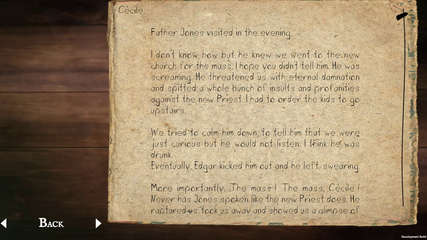 Cécile,
Father Jones visited in the evening.
I don't know how but he knew we went to the new
church for the mass. I hope you didn't tell him. He was
screaming. He threatened us with eternal damnation
and spitted a whole bunch of insults and profanities
against the new Priest. I had to order the kids to go
upstairs.
We tried to calm him down, to tell him that we were
just curious but he would not listen. I think he was
drunk.
Eventually, Edgar kicked him out and he left, swearing.
More importantly... The mass! The mass, Cécile!
Never has Jones spoken like the new Priest does. He
raptured us, took us away and showed us a glimpse of
Back
Development Build